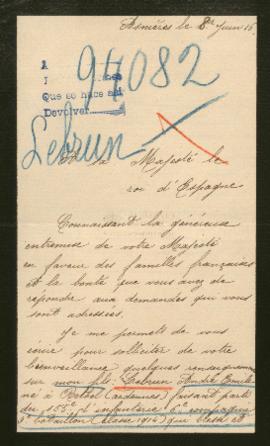 Asnières le 8 Juin 16
94082
Que se hace así
Devolver
Lebrun
A sa Majesté le
roi d'Espagne
Connaissant la généreuse
entremise de votre Majesté
en faveur des familles françaises
et la bonté que vous avez de
repondre aux demandes qui vous
sont adressées.
Je me permets de vous
écrire pour solliciter de votre
bienveillance quelques renseignements
sur mon fils Lebrun André Emile
né à (Ardennes) faisant parti
du 155e d'infanterie compagnie
bataillon (classe 1914) qui blessé et